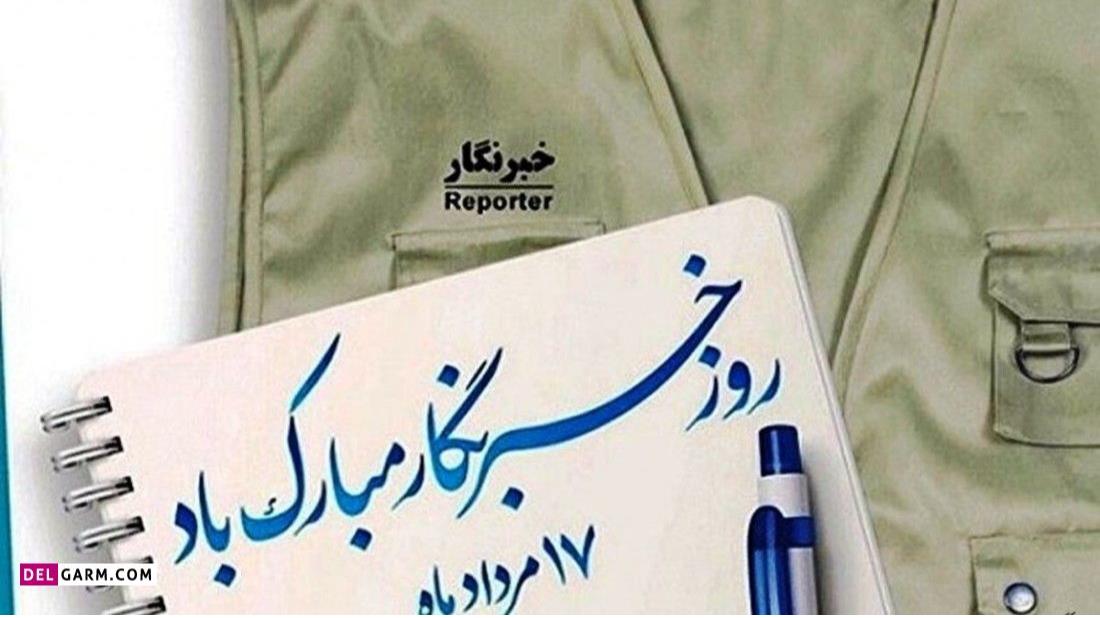 خبرنگار
Reporter
روز خبرنگار مبارک باد
۱۷ مرداد ماه
DELGARM.COM